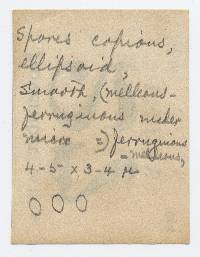 Spores copious,
ellipsoid,
smooth, (melleous-
ferruginous under
micro =) ferruginous
= melleous,
4-5 x 3-4 µ